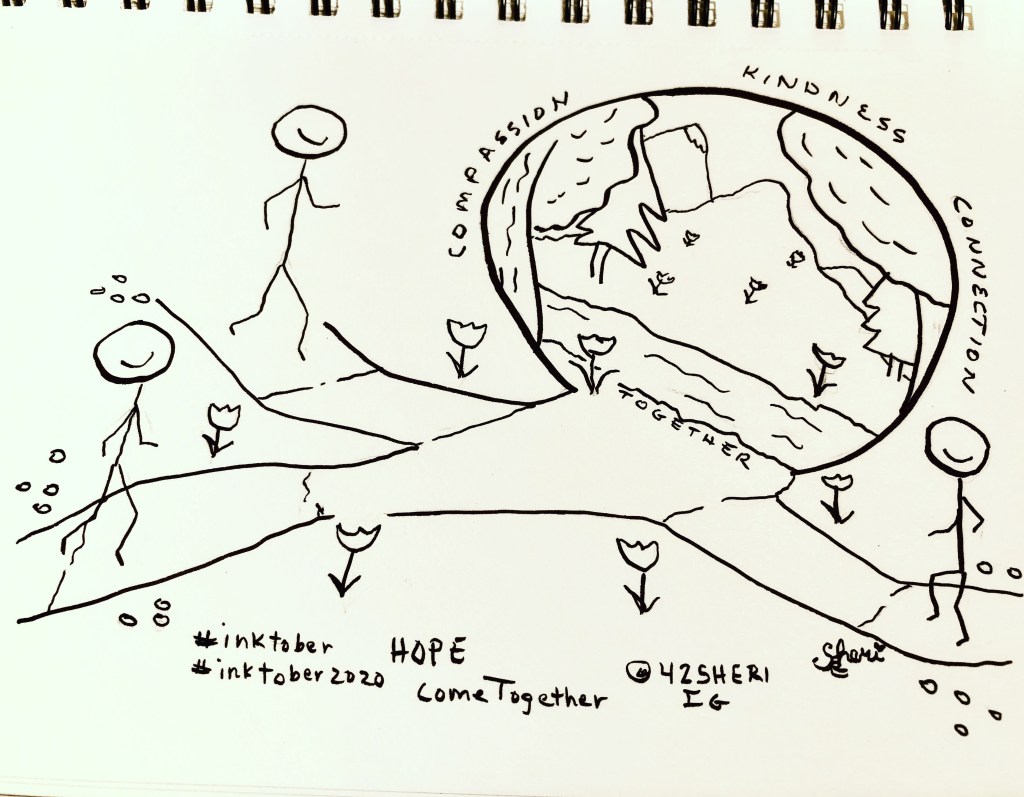 COMPASSION
KINDNESS
CONNECTION
TOGETHER
#inktober
#inktober2020
HOPE
ComeTogether
@42SHERI
IG
Sheri